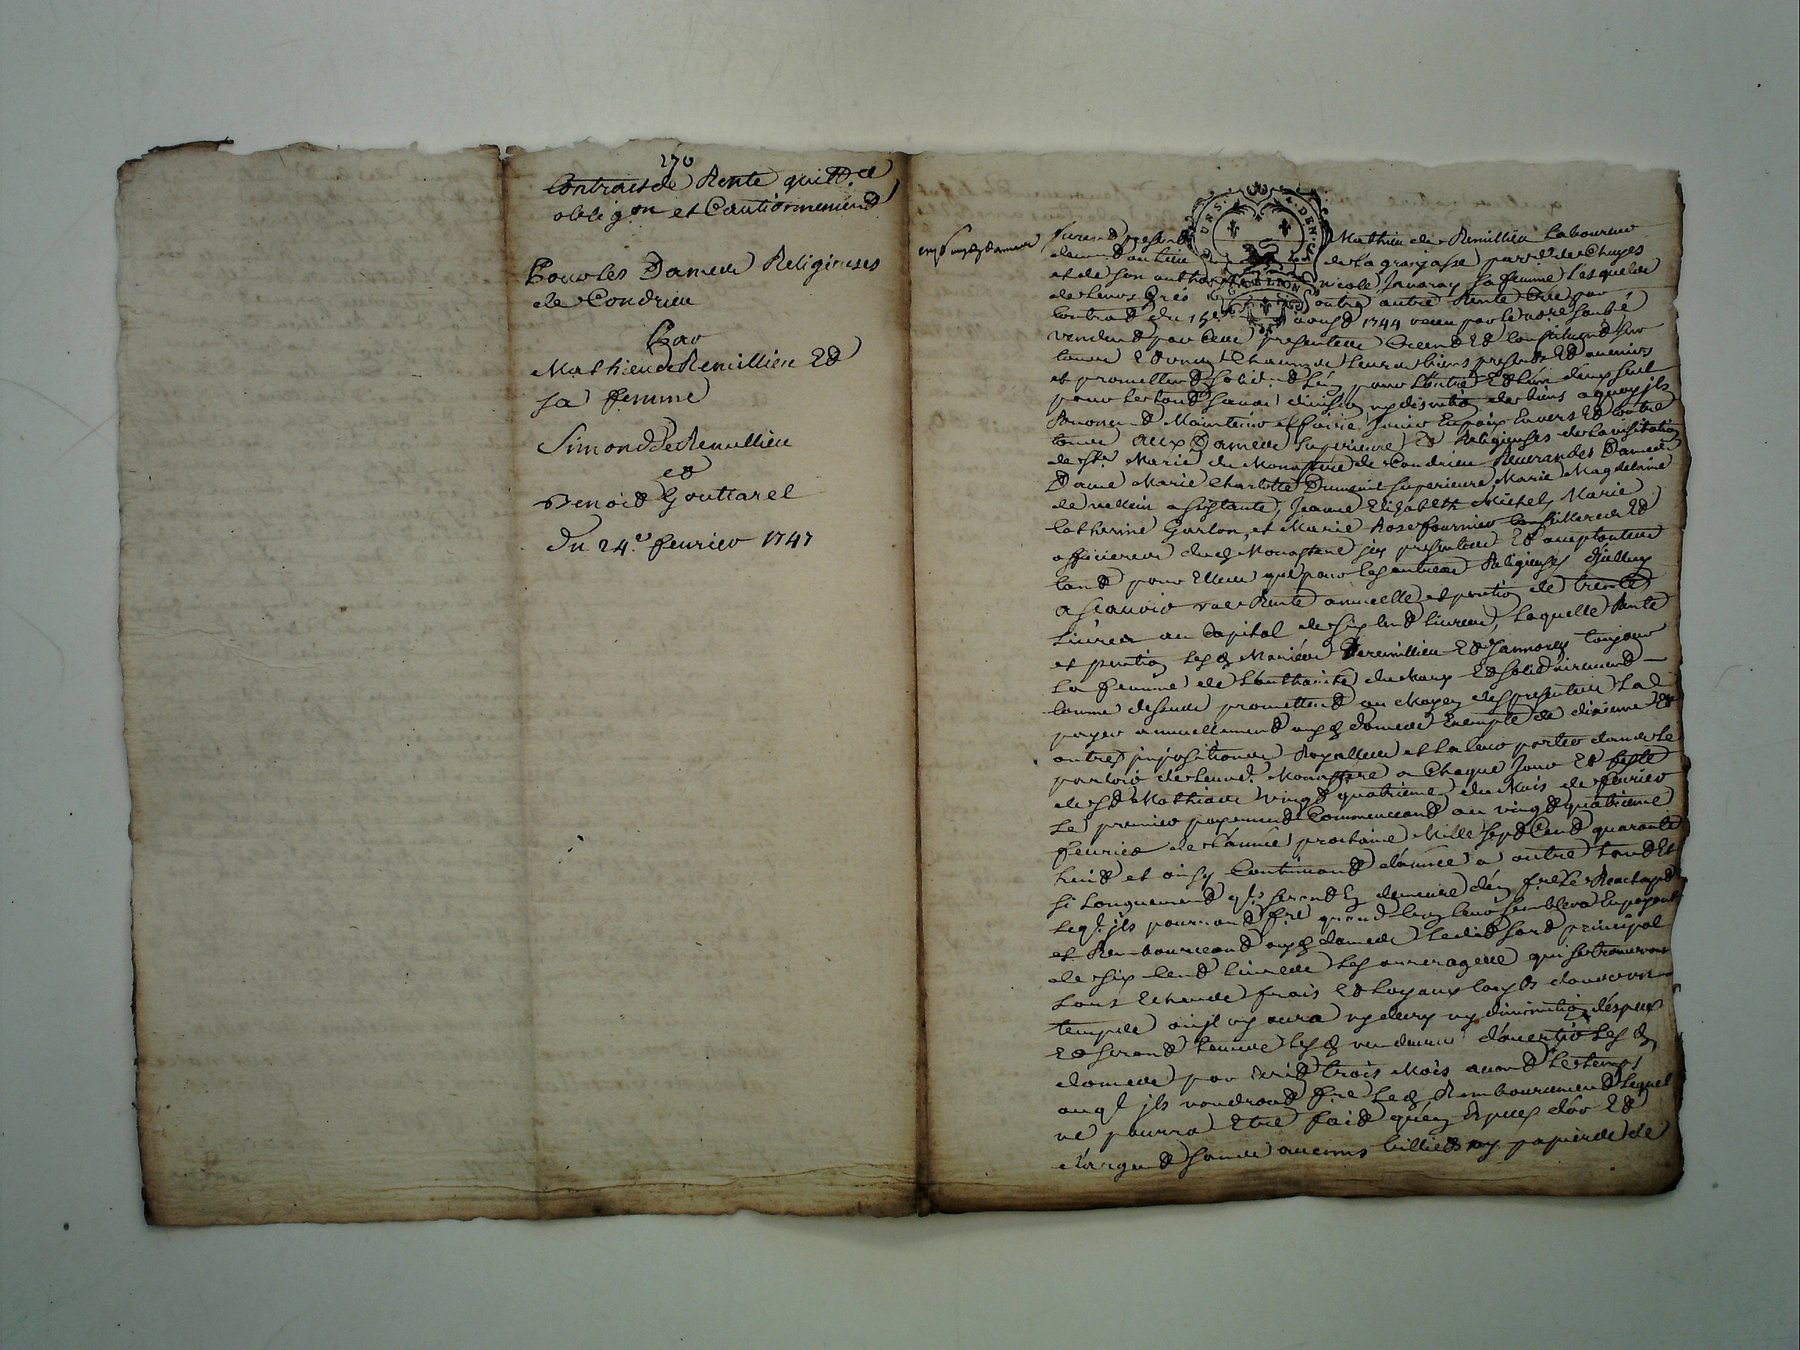 270
Contract de Rente quitt.ce
oblig.on et Cautionnement
Pour les Dames Religieuses
de Condrieu
Par
Mathieu Remillieu Et
sa femme
Simond De Remillieu
et
Benoid Gouttarel
Du 24.e fevrier 1747
furent presents Mathieu de Remillieu laboureur
demeurant au lieu de la grangasse parr.e de Chuyes
et de son authorité nicole Janoray sa femme Lesquels
de leurs grés outre autre Rente Cree par
Contract du 15e aoust 1744 receu par le no.re sousé
vendent par Ces presentes Creent Et Constituent sur
tous Et Uns Chacuns Leurs biens presents Et avenirs
et promettent solid.t L'un pour L'autre Et L'un d'eux seul
pour le tout sans division ny discution de biens a quoy ils
Renoncent Maintenir et faire Jouir En paix Envers Et Contre
tous aux Dames Superieure Et Religieuses de la visitation
de Ste Marie du Monastere de Condrieu Reverandes Dames
Dame Marie Charlotte Dumenil superieure Marie Magdelaine
de assistante, Jeanne Elizabeth Michel, Marie
Catherine Garlon, et Marie Rose fournier Conseilleres Et
officieres dud Monastere icy presentes Et acceptantes
tant pour Elles que pour les autres Religieuses d'icelluy
a scavoir une Rente annuelle et pention de trente
Livres au Capital de six Cent livres, Laquelle Rente
et pention lesd Mariés Deremillieu Et Jannoray toujours
La femme de L'authorité du Mary Et solidairement
Comme dessus promettent au Moyen des presentes La
payer annuellement auxd dames Exempte de dixieme Et
autres impositions Royalles et La leur porter dans le
parloir de leurd. Monastere a Chaque Jour Et feste
de St Mathias vingt quatrieme du Mois de fevrier
Le premier payement Commenceant au vingt quatrieme
fevrier de L'année prochaine Mille sept Cent quarante
huit et ainsy Continuant d'année a autre tant Et
si Longuement q'ls seront En demeure d'En fre Le Rachapt
Leql. ils pourront fre quand bon leur semblera En payant
et Rembourceant auxd dames Ledit sort principal
de six Cent livres Les arrerages qui se trouveront
Lors Echeus frais Et Loyaux Coupts
temps ainsi il ny aura ny ny diminution d'espece
Et seront tenus Lesd vendeurs d'avertir Lesd
dames par Ecrit trois Mois avant Le temps
auql ils voudront fre Led Remboursement Lequel
ne pourra Etre fait qu'En Especes d'or Et
d'argent sans aucuns billiets ny papiers de